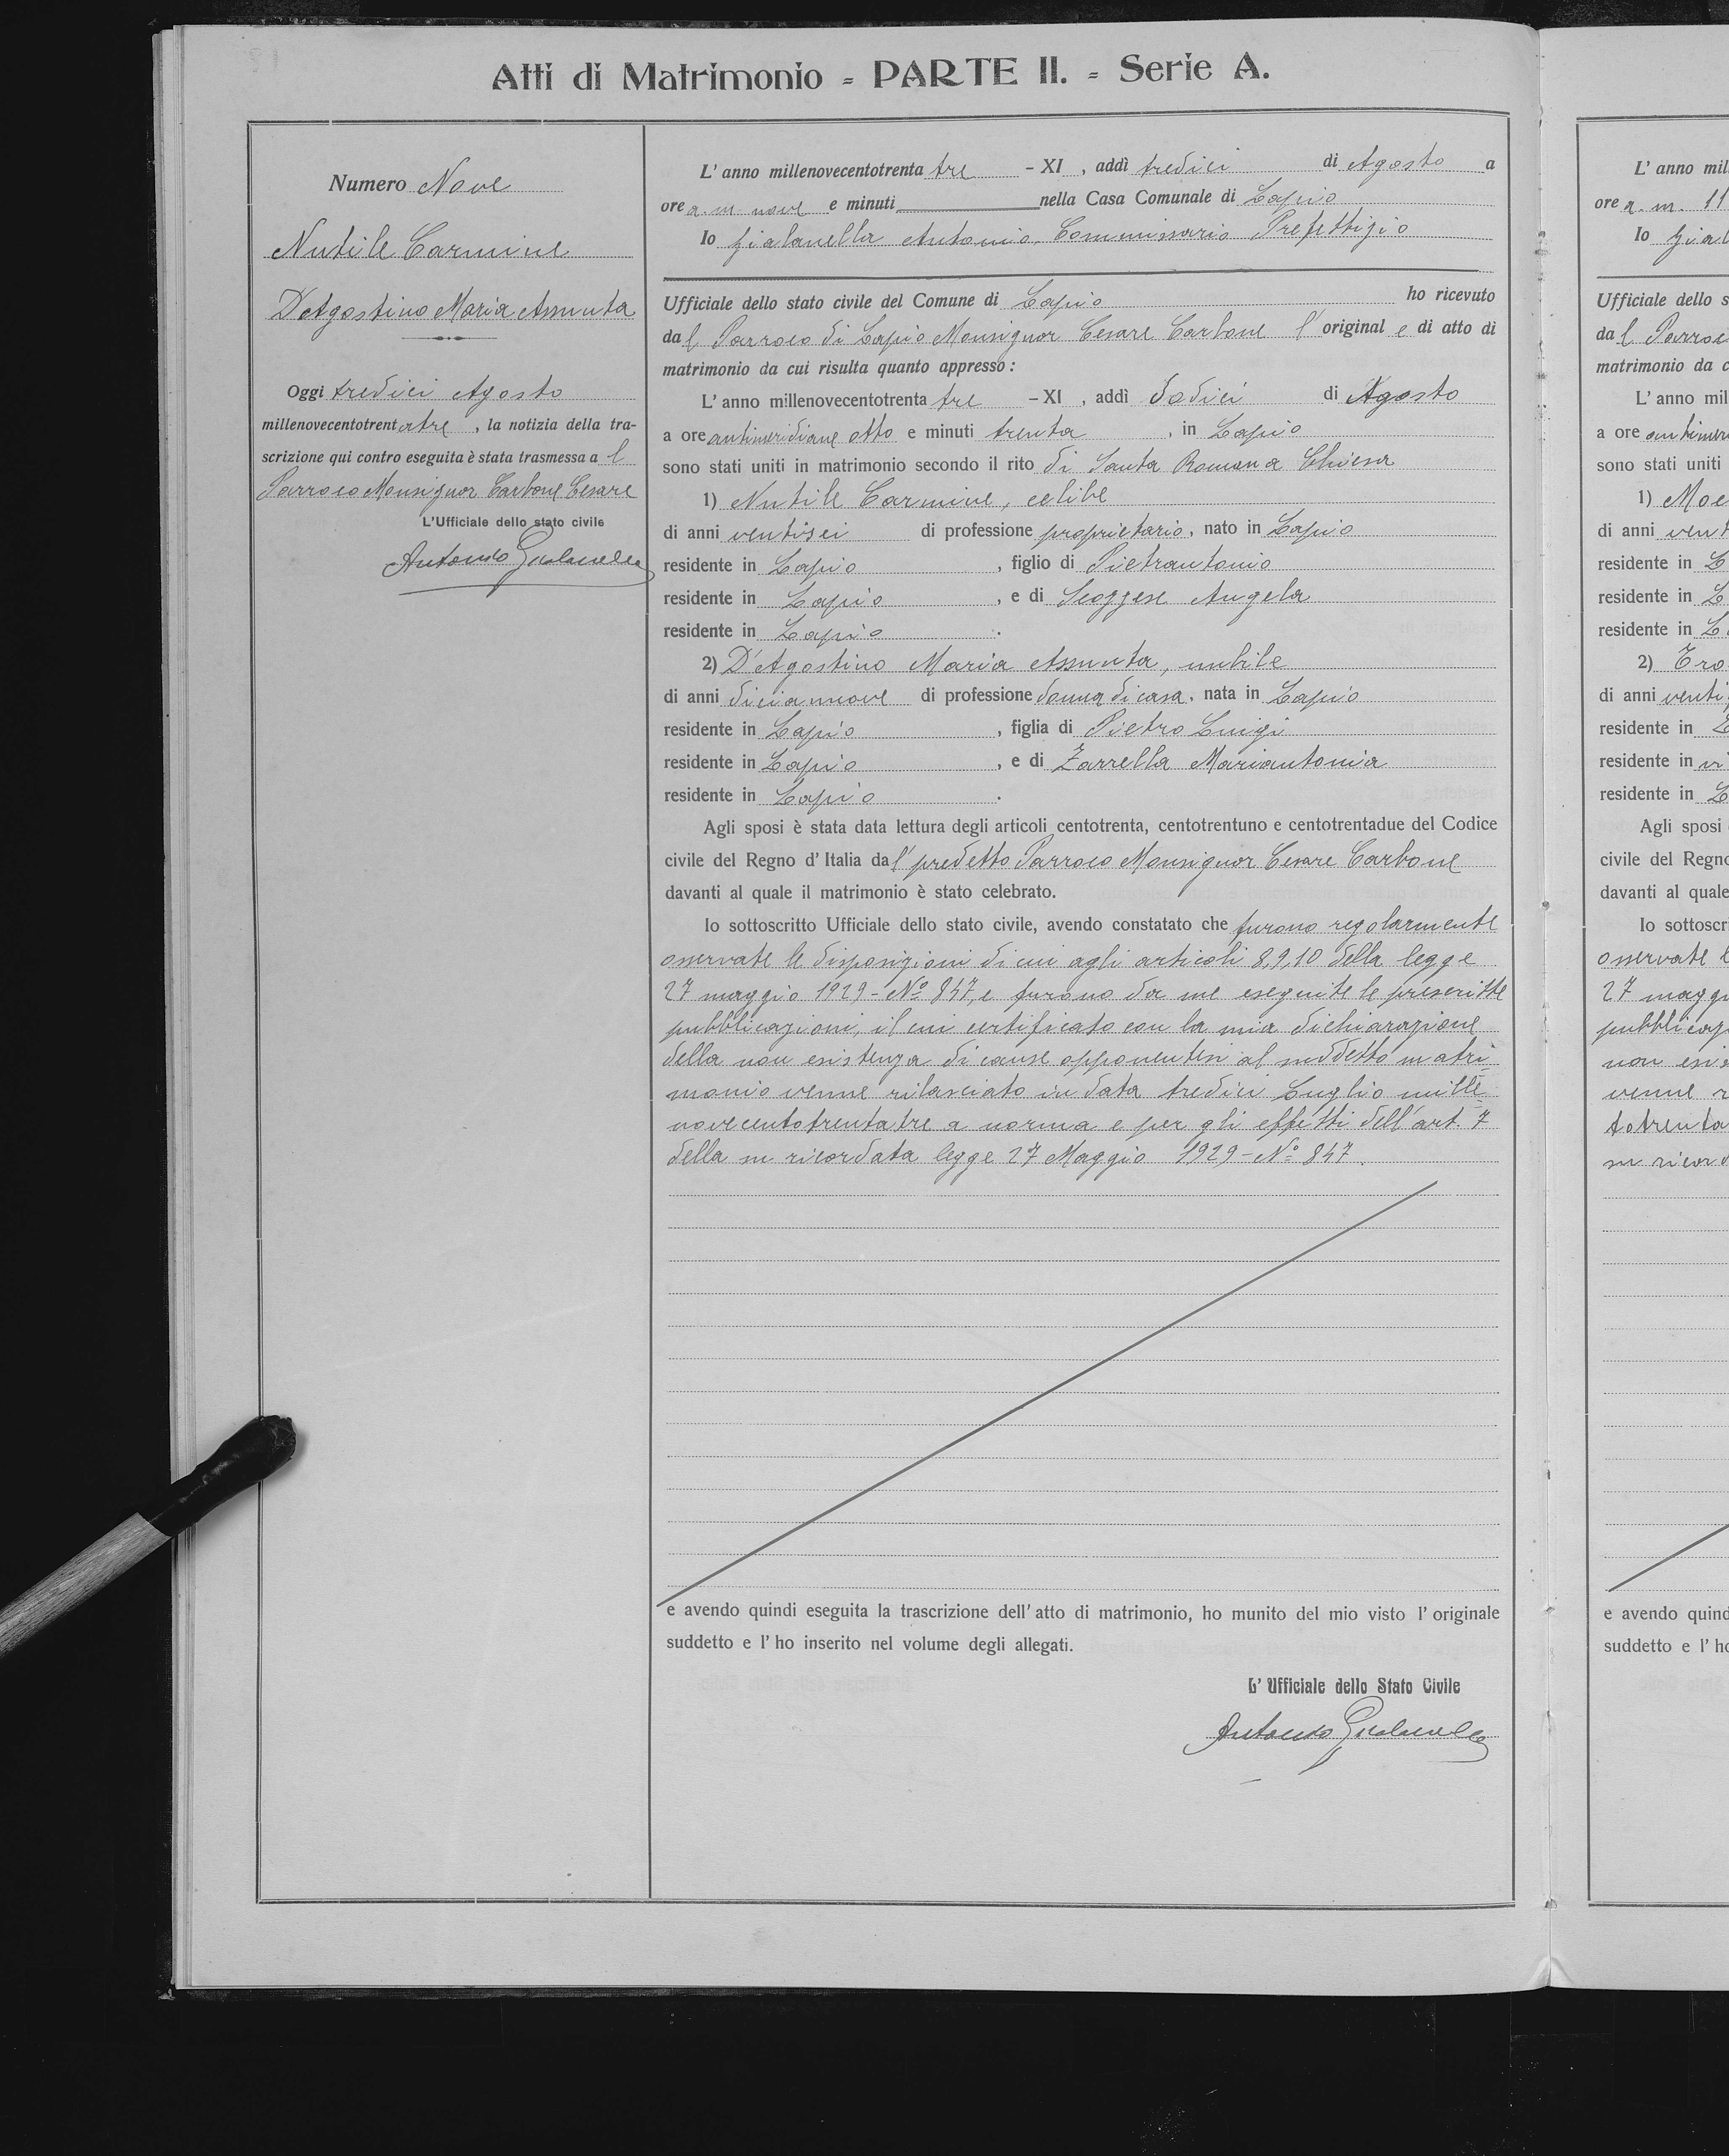 Atti di Matrimonio = PARTE II. = Serie A.
Numero Nove
Nutile Carmine
D'Agostino Maria Assunta
Oggi tredici Agosto
millenovecentotrentatre, la notizia della tra-
scrizione qui contro eseguita è stata trasmessa al
Parroco Monsignor Carbone Cesare
L'Ufficiale dello stato civile
Antonio Gialanella
L' anno millenovecentotrenta tre - XI , addì tredici di Agosto a
ore a. m nove e minuti nella Casa Comunale di Lapio
Io Gialanella Antonio, Commissario Prefettizio
Ufficiale dello stato civile del Comune di Lapio ho ricevuto
dal Parroco di Lapio Monsignor Cesare Carbone l' originale di atto di
matrimonio da cui risulta quanto appresso :
L' anno millenovecentotrenta tre - XI , addì dodici di Agosto
a ore antimeridiane otto e minuti trenta , in Lapio
sono stati uniti in matrimonio secondo il rito di Santa Romana Chiesa
1) Nutile Carmine, celibe
di anni ventisei di professione proprietario, nato in Lapio
residente in Lapio , figlio di Pietrantonio
residente in Lapio , e di Scoggese Angela
residente in Lapio .
2) D'Agostino Maria Assunta, nubile
di anni diciannove di professione donna di casa, nata in Lapio
residente in Lapio , figlia di Pietro Luigi
residente in Lapio , e di Zarrella Mariantonia
residente in Lapio .
Agli sposi è stata data lettura degli articoli centotrenta, centotrentuno e centotrentadue del Codice
civile del Regno d' Italia dal predetto Parroco Monsignor Cesare Carbone
davanti al quale il matrimonio è stato celebrato.
Io sottoscritto Ufficiale dello stato civile, avendo constatato che furono regolarmente
osservate le disposizioni di cui agli articoli 8,9,10 della legge
27 maggio 1929 - Nº 847, e furono da me eseguite le prescritte
pubblicazioni, il cui certificato con la mia dichiarazione
della non esistenza di cause opponentesi al suddetto matri=
monio venne rilasciato in data tredici Luglio mille=
novecentotrentatre a norma e per gli effetti dell'art. 7
della su ricordata legge 27 Maggio 1929 - Nº 847.
e avendo quindi eseguita la trascrizione dell' atto di matrimonio, ho munito del mio visto l' originale
suddetto e l' ho inserito nel volume degli allegati.
L' Ufficiale dello Stato Civile
Antonio Gialanella
L' anno mil
ore a. m. 11
Io Gial
Ufficiale dello s
dal Parroc
matrimonio da c
L' anno mil
a ore antimer
sono stati uniti
1) Moc
di anni vent
residente in L
residente in L
residente in La
2) Tro
di anni venti
residente in L
residente in vi
residente in L
Agli sposi
civile del Regno
davanti al quale
Io sottoscri
osservate l
27 maggi
pubblicaz
non esis
venne r
totrenta
su ricord
e avendo quind
suddetto e l' ho